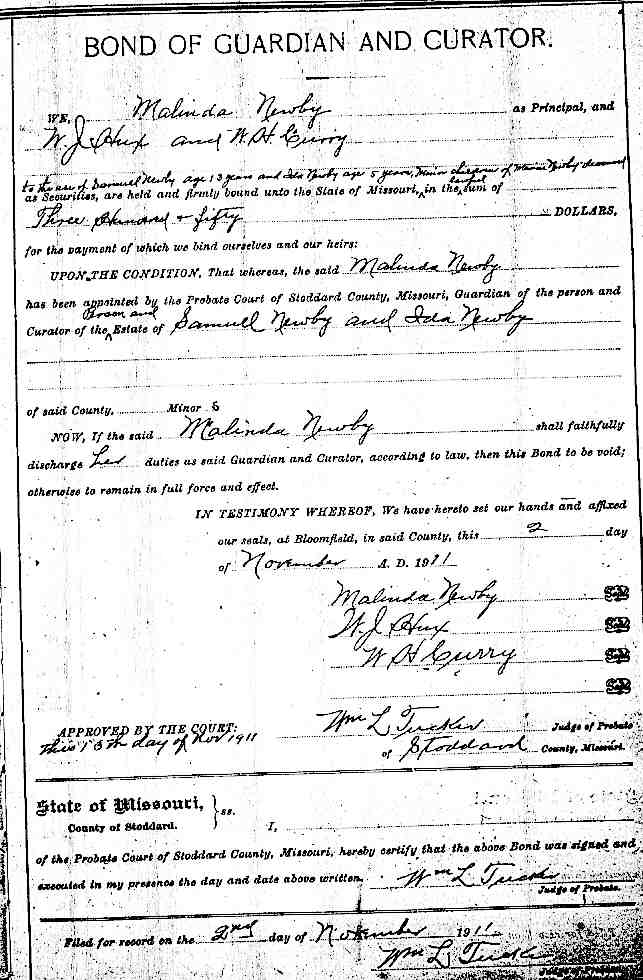 BOND OF GUARDIAN AND CURATOR.
WE, Malinda Newby as Principal, and
W. J. Hux and W. H. Curry
to the use of Samuel Newby age 13 years and Ida Newby age 5 years, Minor children of Newby deceased
as Securities, are held and firmly bound unto the State of Missouri, in the sum of
Three Hundred & fifty DOLLARS,
for the payment of which we bind ourselves and our heirs:
UPON THE CONDITION, That whereas, the said Malinda Newby
has been appointed by the Probate Court of Stoddard County, Missouri, Guardian of the person and
person and
Curator of the Estate of Samuel Newby and Ida Newby
of said County, Minor s
NOW, If the said Malinda Newby shall faithfully
discharge her duties as said Guardian and Curator, according to law, then this Bond to be void;
otherwise to remain in full force and effect.
IN TESTIMONY WHEREOF, We have hereto set our hands and affixed
our seals, at Bloomfield, in said County, this 2 day
of November A. D. 1911
Malinda Newby
W. J. Hux
W H Curry
Wm L Tucker Judge of Probate
APPROVED BY THE COURT:
this 15th day of Nov 1911
of Stoddard County, Missouri.
State of Missouri, } ss.
County of Stoddard.
I,
of the Probate Court of Stoddard County, Missouri, hereby certify that the above Bond was signed and
executed in my presence the day and date above written. Wm L Tucker
Judge of Probate.
Filed for record on the 2nd day of November 1911
Wm L Tucker
Judge of Probate